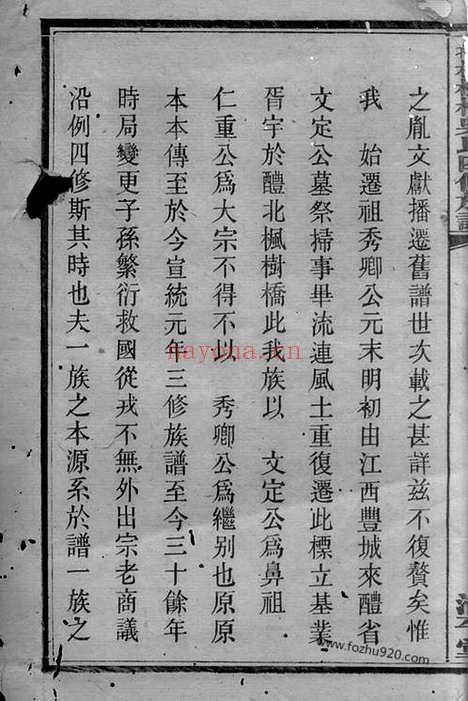 之胤文獻播遷舊譜世次載之甚詳兹不復贅矣惟
我　始遷祖秀卿公元末明初由江西豐城來醴省
文定公墓祭掃事畢流連風土重復遷此標立基業
胥宇於醴北楓樹橋此我族以　文定公爲鼻祖
仁重公爲大宗不得不以　秀卿公爲繼别也原原
本本傳至於今宣統元年三修族譜至今三十餘年
時局變更子孫繁衍救國從戎不無外出宗老商議
沿例四修斯其時也夫一族之本源系於譜一族之
nayona.cn
www.fozhu920.com